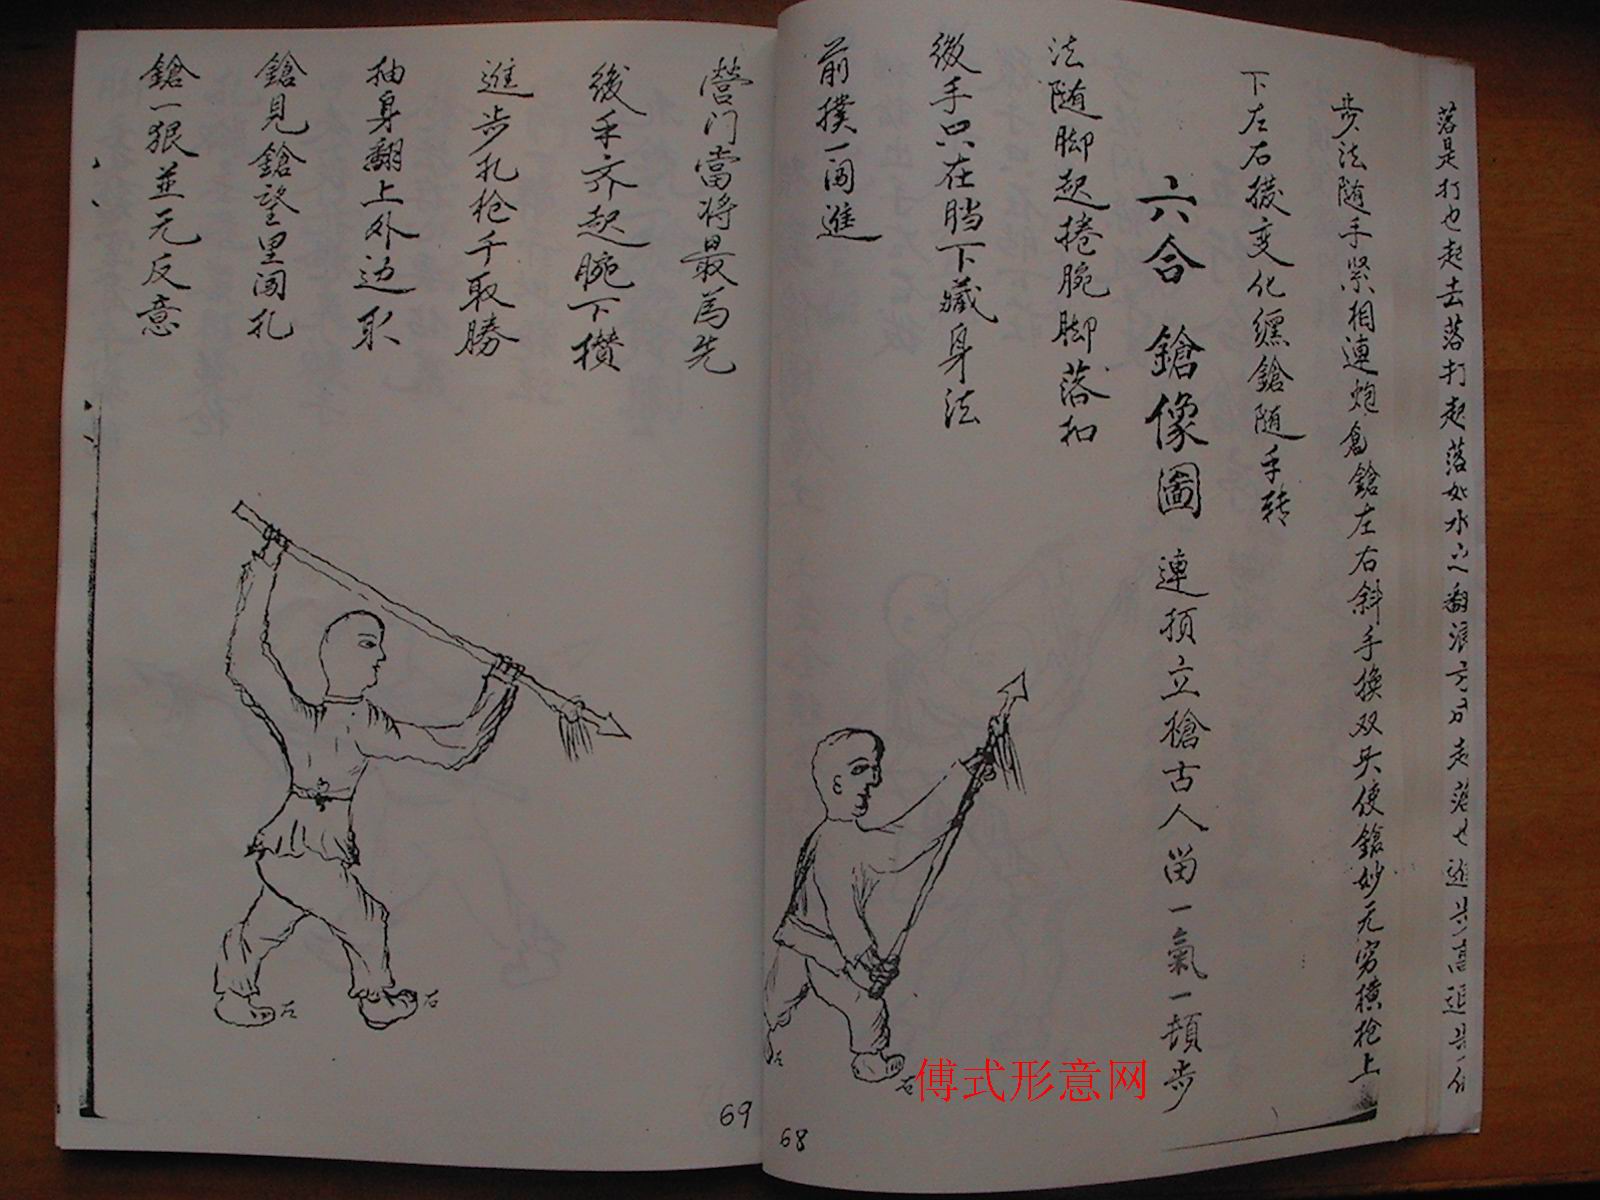 落是打也起去落打起落如水之翻浪方为起落也進步高退步低
步法随手紧相連炮鎗左右斜手换双头使鎗妙无穷横抢上
下左右拨变化缠鎗随手转
六合鎗像圖 連顶立槍古人留一氣一頓步
法随脚起捲腕脚落扣
後手只在裆下藏身法
前撲一闯進
68
營门當将最為先
後手齐起腕下攅
進步扎枪千取勝
抽身翻上外边取
鎗見鎗望里闯扎
鎗一狠並无反意
左
右
左
右
69
傅式形意网